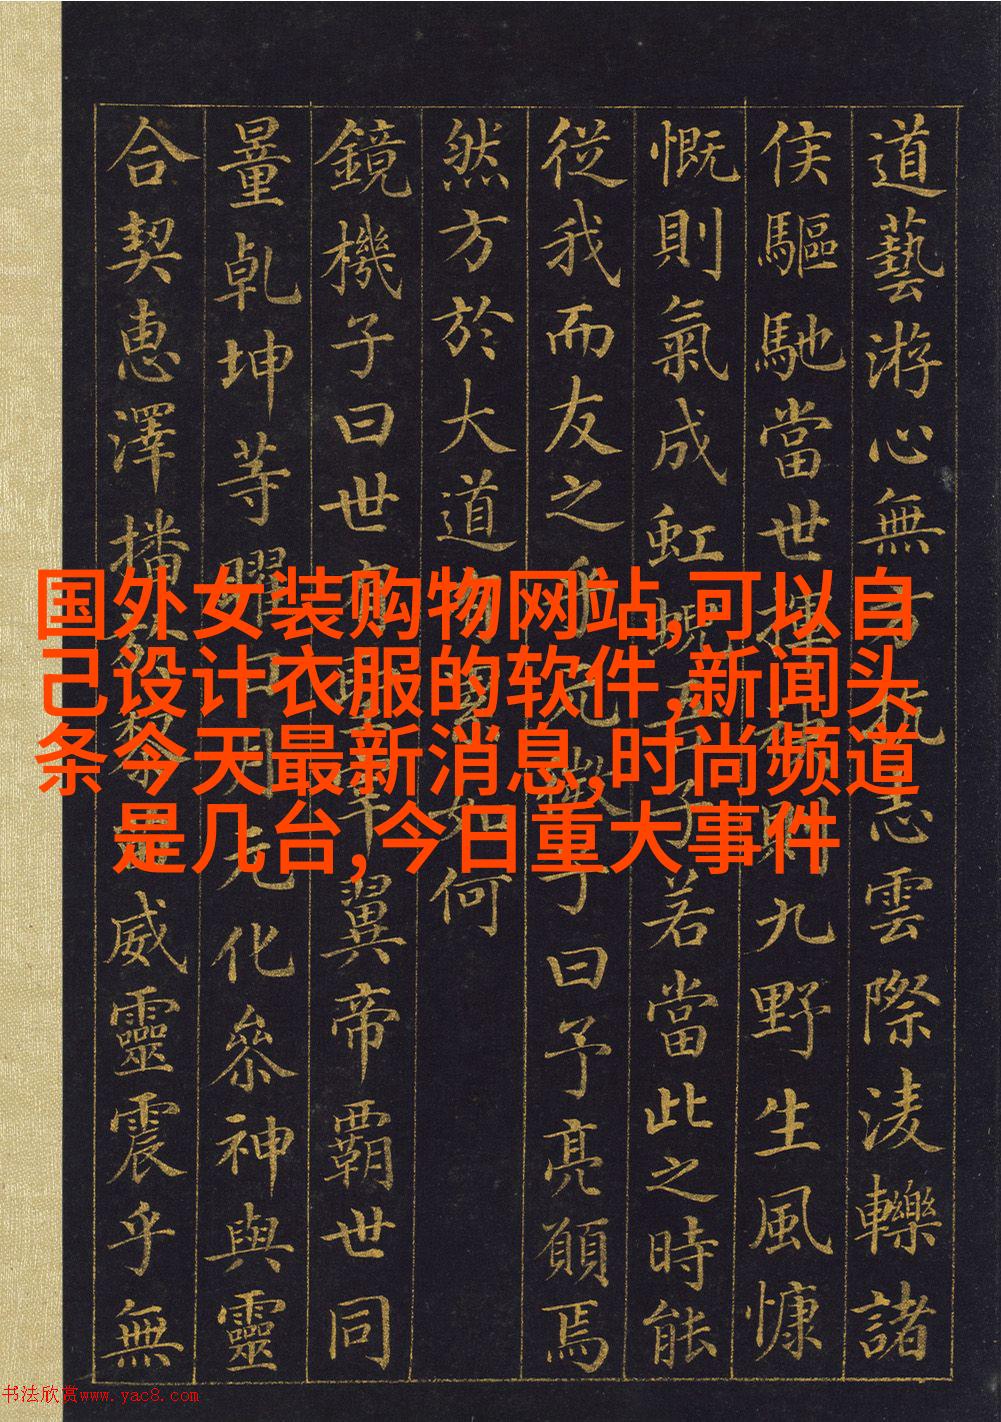 道藝游心無方抗志雲際淩轢諸
侯驅馳當世揮則九野生風慷
慨則氣成虹蜺吾子若當此之時能
從我而友之乎微子曰予亮願焉
然方於大道累如何
鏡機子曰世有聖宰翼帝霸世同
量乾坤等曜日月元化參神與靈
合契惠澤播於黎威靈震乎無
国外女装购物网站,可以自
己设计衣服的软件,新闻头
条今天最新消息,时尚频道
是几台,今日重大事件
书法欣赏www.yac8.com